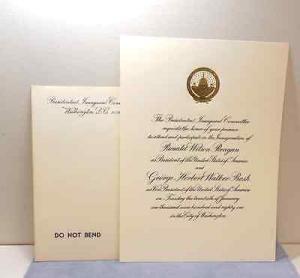 Presidential Inaugural Comm
Washington, D.C.
DO NOT BEND
The Presidential Inaugural Committee
requests the honor of your presence
to attend and participate in the Inauguration of
Ronald Wilson Reagan
as President of the United States of America
and
George Herbert Walker Bush
as Vice President of the United States of America
on Tuesday the twentieth of January
one thousand nine hundred and eighty one
in the City of Washington